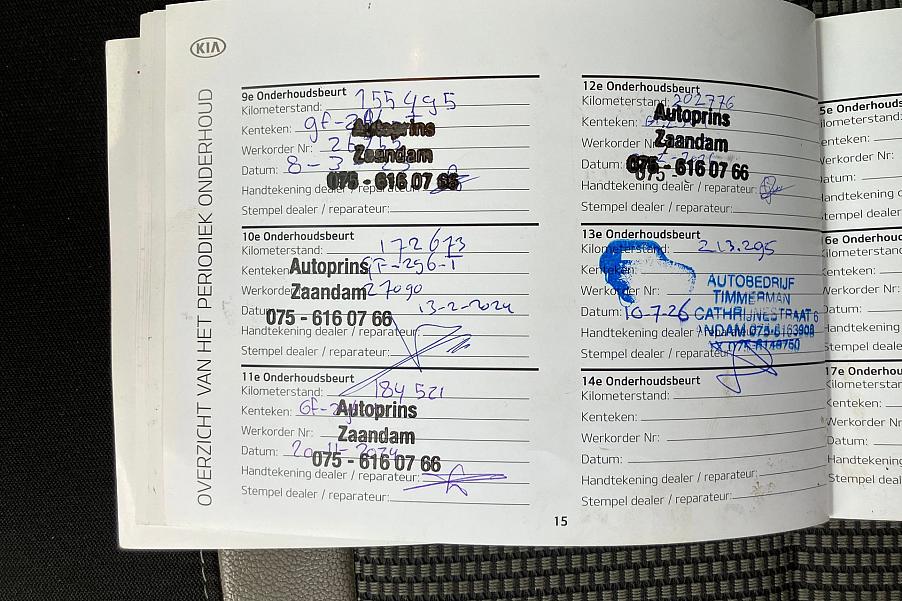 KIA
OVERZICHT VAN HET PERIODIEK ONDERHOUD
9e Onderhoudsbeurt
Kilometerstand: 155495
Kenteken:
Autoprins
Werkorder Nr:
Zaandam
Datum: 8-3
075 - 616 07 66
Handtekening dealer / reparateur:
Stempel dealer / reparateur:
10e Onderhoudsbeurt
Kilometerstand: 172673
Kenteken GF-296-T
Autoprins
Werkorder Nr: 27090
Zaandam
Datum: 13-2-2024
075 - 616 07 66
Handtekening dealer / reparateur:
Stempel dealer / reparateur:
11e Onderhoudsbeurt
Kilometerstand: 184 521
Kenteken: GF-
Autoprins
Werkorder Nr:
Zaandam
Datum: 20-11-2024
075 - 616 07 66
Handtekening dealer / reparateur:
Stempel dealer / reparateur:
12e Onderhoudsbeurt
Kilometerstand: 202776
Kenteken:
Autoprins
Werkorder Nr:
Zaandam
Datum:
075 - 616 07 66
Handtekening dealer / reparateur:
Stempel dealer / reparateur:
13e Onderhoudsbeurt
Kilometerstand: 213.295
Kenteken:
Werkorder Nr:
Datum: 10-7-26
AUTOBEDRIJF
TIMMERMAN
CATHRIJNESTRAAT 6
NDAM 075-6163908
075-6149750
Handtekening dealer / reparateur:
Stempel dealer / reparateur:
14e Onderhoudsbeurt
Kilometerstand:
Kenteken:
Werkorder Nr:
Datum:
Handtekening dealer / reparateur:
Stempel dealer / reparateur:
15
5e Onderhouds
ilometerstand:
enteken:
Werkorder Nr:
atum:
Handtekening d
tempel dealer
16e Onderhouds
Kilometerstand
Kenteken:
Werkorder Nr:
Datum:
Handtekening
Stempel deale
17e Onderhou
Kilometerstan
Kenteken:
Werkorder Nr
Datum:
Handtekening
Stempel deal